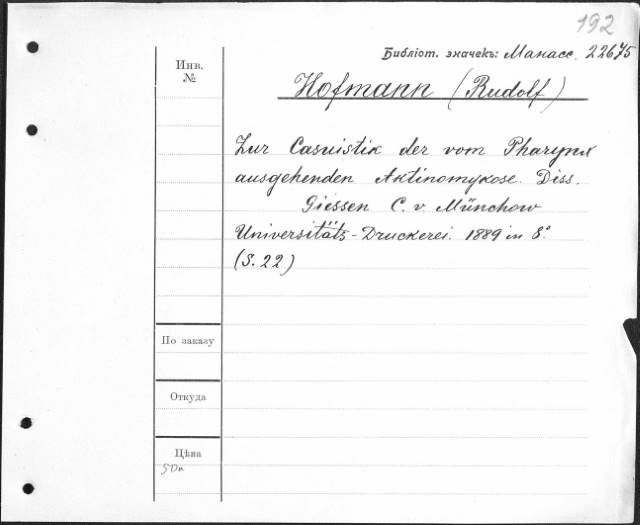 192
Инв.
№
Библіот. значекъ: Манасс. 22675
Hofmann (Rudolf)
Zur Casuistik der vom Pharynx
ausgehenden Aktinomykose. Diss.
Giessen C. v. Münchow
Universitäts-Druckerei. 1889 in 8.°
(S. 22)
По заказу
Откуда
Цѣна